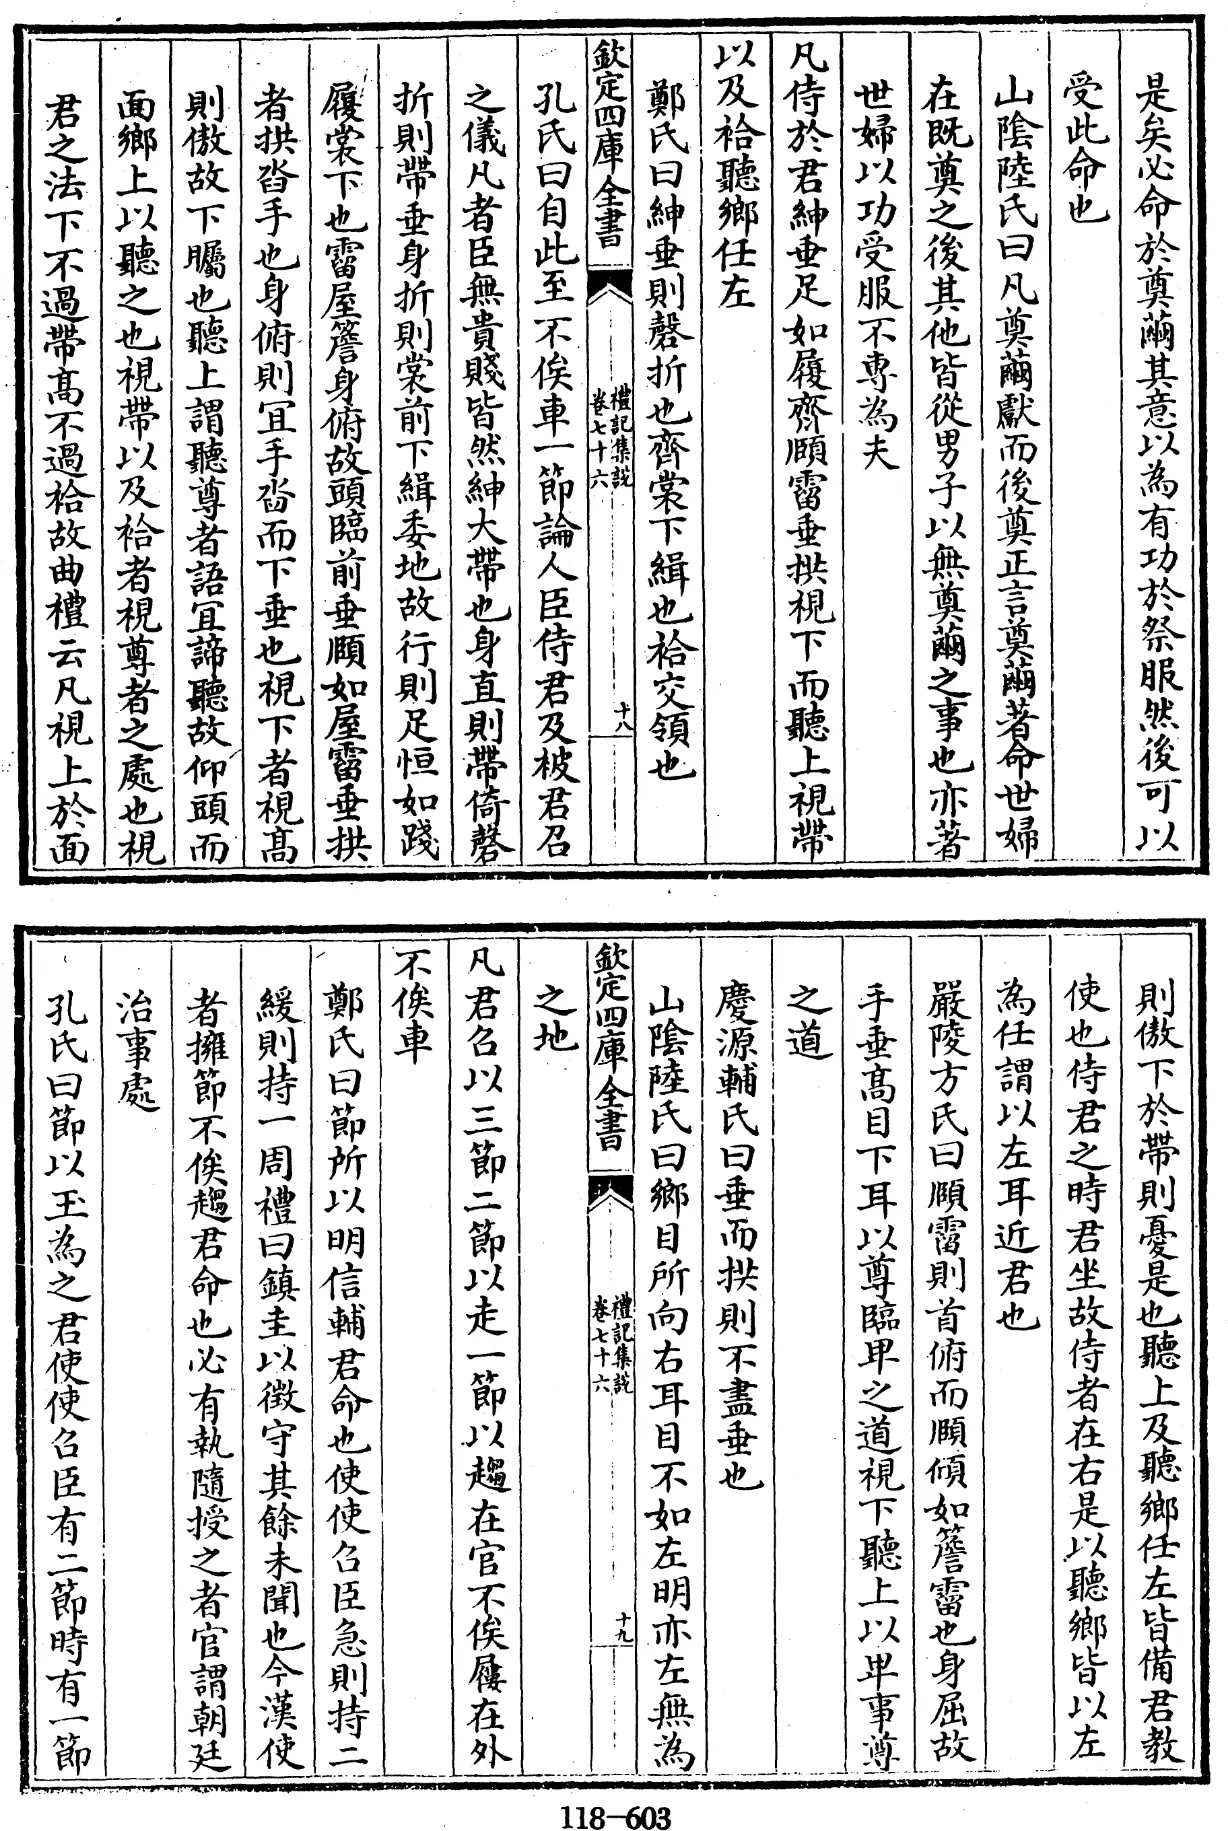 是矣必命於奠繭其意以為有功於祭服然後可以
受此命也
山陰陸氏曰凡奠繭獻而後奠正言奠繭著命世婦
在既奠之後其他皆從男子以無奠繭之事也亦著
世婦以功受服不專為夫
凡侍於君紳垂足如履齊頤霤垂拱視下而聽上視帶
以及袷聽鄉任左
鄭氏曰紳垂則磬折也齊裳下緝也袷交領也
欽定四庫全書
禮記集說
卷七十六
十八
孔氏曰自此至不俟車一節論人臣侍君及被君召
之儀凡者臣無貴賤皆然紳大帶也身直則帶倚磬
折則帶垂身折則裳前下緝委地故行則足恒如踐
履裳下也霤屋簷身俯故頭臨前垂頤如屋霤垂拱
者拱沓手也身俯則宜手沓而下垂也視下者視髙
則傲故下矚也聽上謂聽尊者語宜諦聽故仰頭而
面鄉上以聽之也視帶以及袷者視尊者之處也視
君之法下不過帶髙不過袷故曲禮云凡視上於面
則傲下於帶則憂是也聽上及聽鄉任左皆備君教
使也侍君之時君坐故侍者在右是以聽鄉皆以左
為任謂以左耳近君也
嚴陵方氏曰頤霤則首俯而頤傾如簷霤也身屈故
手垂髙目下耳以尊臨卑之道視下聽上以卑事尊
之道
慶源輔氏曰垂而拱則不盡垂也
山陰陸氏曰鄉目所向右耳目不如左明亦左無為
欽定四庫全書
禮記集說
卷七十六
十九
之地
凡君召以三節二節以走一節以趨在官不俟屨在外
不俟車
鄭氏曰節所以明信輔君命也使使召臣急則持二
緩則持一周禮曰鎮圭以徴守其餘未聞也今漢使
者擁節不俟趨君命也必有執隨授之者官謂朝廷
治事處
孔氏曰節以玉為之君使使召臣有二節時有一節
118-603